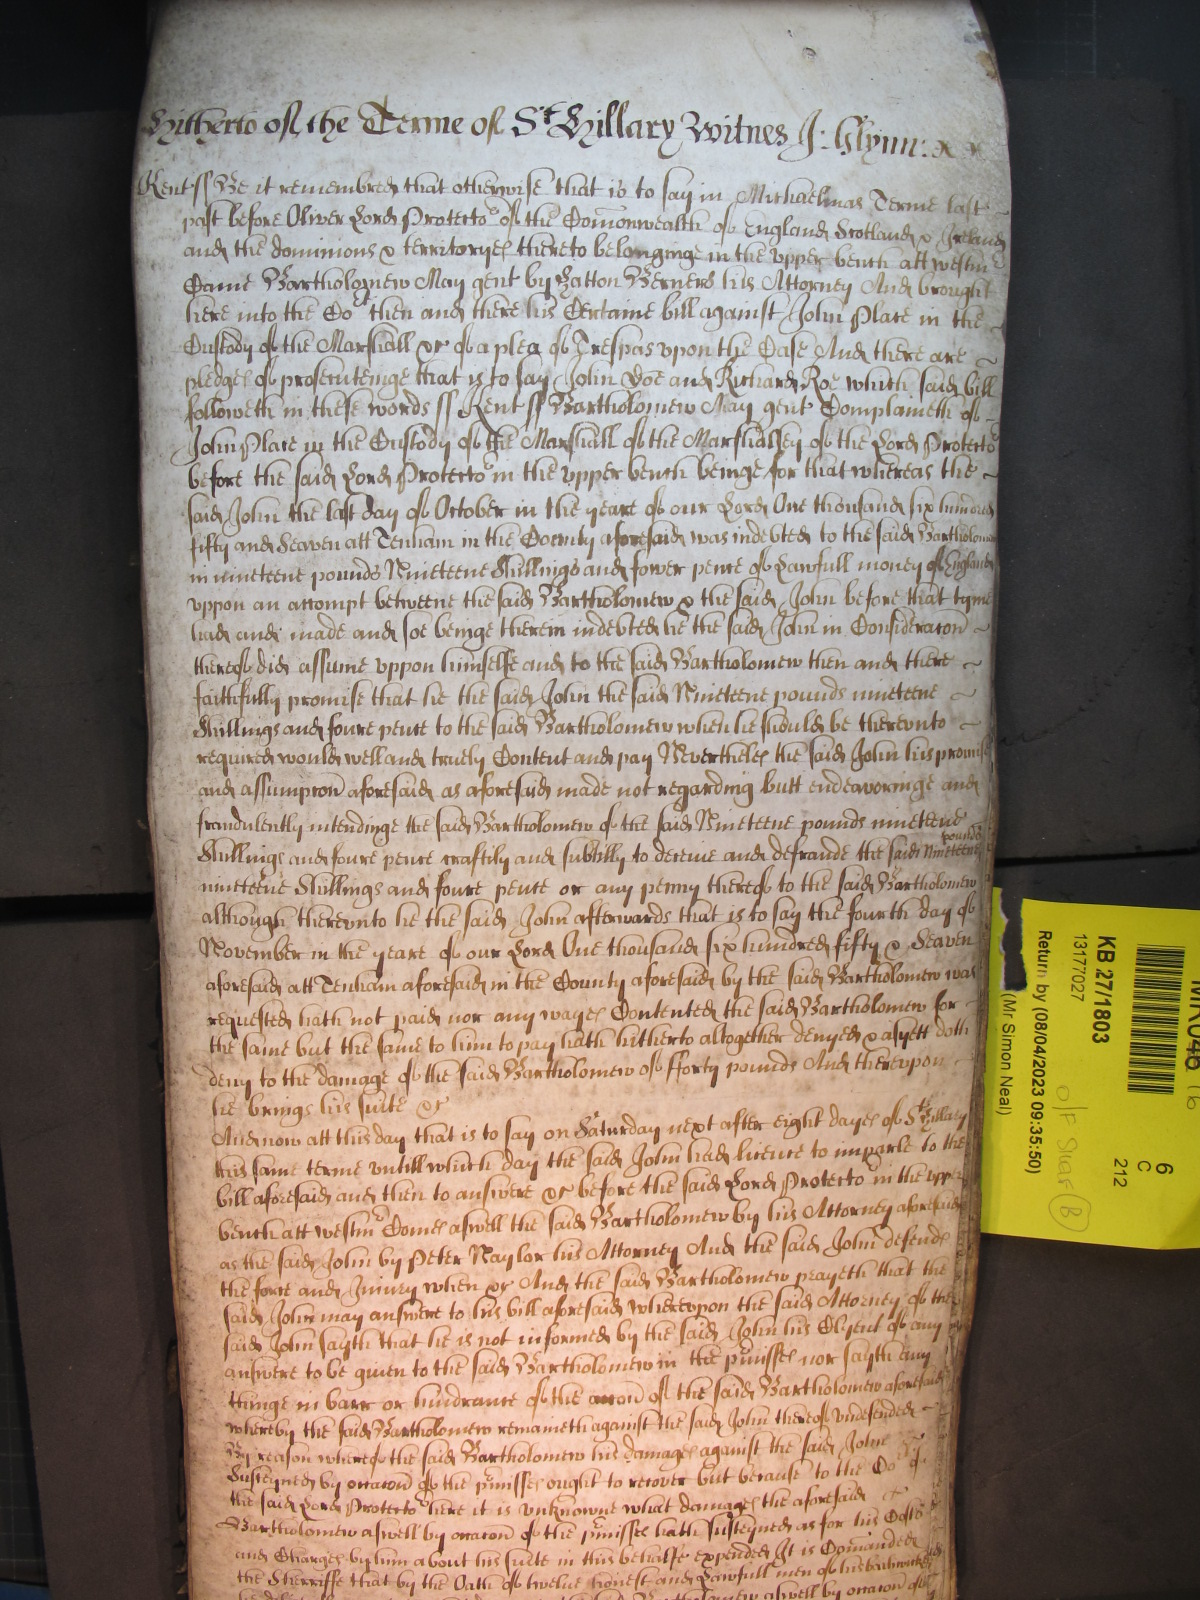 Hitherto of the Terme of St Hillary Witnes J: Glynn:
Kent ss Be it remembred that otherwise that is to say in Michaelmas Terme last
past before Oliver Lord Protector of the Comonwealth of England Scotland & Ireland
and the dominions & territoryes thereto belonginge in the vpper bench att westm
Came Bartholomew May gent by Hatton Berners his Attorney And brought
here into the Cot then and there his Certaine bill against John Place in the
Custody of the Marshall &c of a plea of Trespas vpon the Case And there are
pledges of prosecuteinge that is to say John Doe and Richard Roe which said bill
followeth in these words ss Kent ss Bartholomew May gent Complaineth of
John Place in the Custody of the Marshall of the Marshalsey of the Lord Protector
before the said Lord Protector in the vpper bench beinge for that whereas the
said John the last day of October in the yeare of our Lord One thousand six hundred
fifty and Seaven att Tenham in the County aforesaid was indebted to the said Bartholomew
in nineteene pounds Nineteene Shillings and fower pence of Lawfull money of England
vppon an accompt betweene the said Bartholomew & the said John before that tyme
had and made and soe beinge therein indebted he the said John in Consideracon
thereof did assume vppon himselfe and to the said Bartholomew then and there
faithfully promise that he the said John the said Nineteene pounds nineteene
Shillings and foure pence to the said Bartholomew when he should be therevnto
required would well and truely Content and pay Neverthelesse the said John his promise
and assumpcon aforesaid as aforesaid made not regarding butt endeavoringe and
fraudulently intendinge the said Bartholomew of the said Nineteene pounds nineteene
Shillings and foure pence craftily and subtilly to deceive and defraude the said Nineteene pounds
nineteene Shillings and foure pence or any penny thereof to the said Bartholomew
although therevnto he the said John afterwards that is to say the fourth day of
November in the yeare of our Lord One thousand six hundred fifty & Seaven
aforesaid att Tenham aforesaid in the County aforesaid by the said Bartholomew was
requested hath not paid nor any wayes Contented the said Bartholomew for
the same but the same to him to pay hath hitherto altogether denyed & as yett doth
deny to the damage of the said Bartholomew of fforty pounds And therevpon
he brings his suite &c
And now att this day that is to say on Saturday next after eight dayes of St Hillary
this same terme vntill which day the said John had licence to imparle to the
bill aforesaid and then to answere &c before the said Lord Protector in the vpper
bench att westm Comes aswell the said Bartholomew by his Attorney aforesaid
as the said John by Peter Naylor his Attorney And the said John defends
the force and Iniury when &c And the said Bartholomew prayeth that the
said John may answere to his bill aforesaid wherevpon the said Attorney of the
said John sayth that he is not informed by the said John his Clyent of any
answere to be given to the said Bartholomew in the pmisses nor sayth any
thinge in barr or hindrance of the accon of the said Bartholomew aforesaid
whereby the said Bartholomew remaineth against the said John thereof vndefended
By reason whereof the said Bartholomew his damages against the said John
Susteyned by occacon of the pmisses ought to recover but because to the Cot of
the said Lord Protector here it is vnknowne what damages the aforesaid
Bartholomew aswell by occacon of the pmisses hath susteyned as for his Costs
and Charges by him about his suite in this behalfe expended It is Comanded
the Sherriffe that by the Oath of twelve honest and Lawfull men of his bailiwick
Bartholomew aswell by occacon of
6
C
212
KB 27/1803
13177027
Return by (08/04/2023 09:35:50)
(Mr Simon Neal)